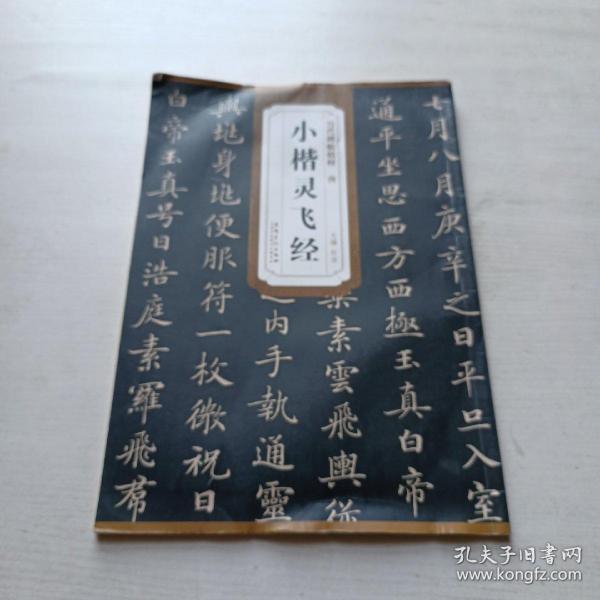 小楷灵飞经
历代碑帖精粹
七月八月庚辛之日平旦入室
通平坐思西方西極玉真白帝
素雲飛輿從
之内手執通靈
輿地身地便服符一枚微祝日
白帝玉真号日浩庭素羅飛君
孔夫子旧书网
www.kongfz.com